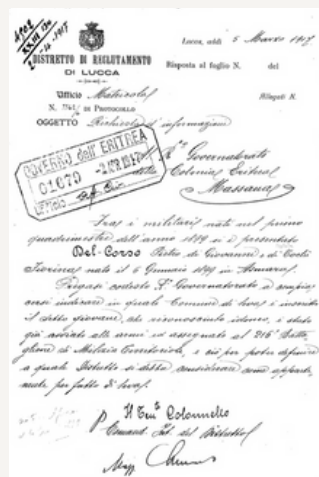 4902
XXIII
1917
DISTRETTO DI RECLUTAMENTO
DI LUCCA
Lucca, addì 5 Marzo 1917
Risposta al foglio N. del
Ufficio Matricola
Allegati N.
N. DI PROTOCOLLO
OGGETTO Richiesta d'informazioni
GOVERNO dell'ERITREA
01079
2 APR. 1917
UFFICIO
R° Governatorato
della Colonia Eritrea
Massaua
Fra i militari nati nel primo
quadrimestre dell'anno 1899 si è presentato
Del-Corso Pietro di Giovanni e di Ciochi
nato il 6 Gennaio 1899 in Asmara.
Pregasi codesto R° Governatorato a
indicare in quale Comune di leva è inscritto
il detto giovane, che riconosciuto idoneo, è stato
già avviato alle armi ed assegnato al 216°
glione di Milizia Territoriale, e ciò per poter definire
a quale Distretto si debba considerare come apparte
nente per fatto di leva.
Il Ten. Colonnello
P. Comand. Int. del Distretto
Magg.